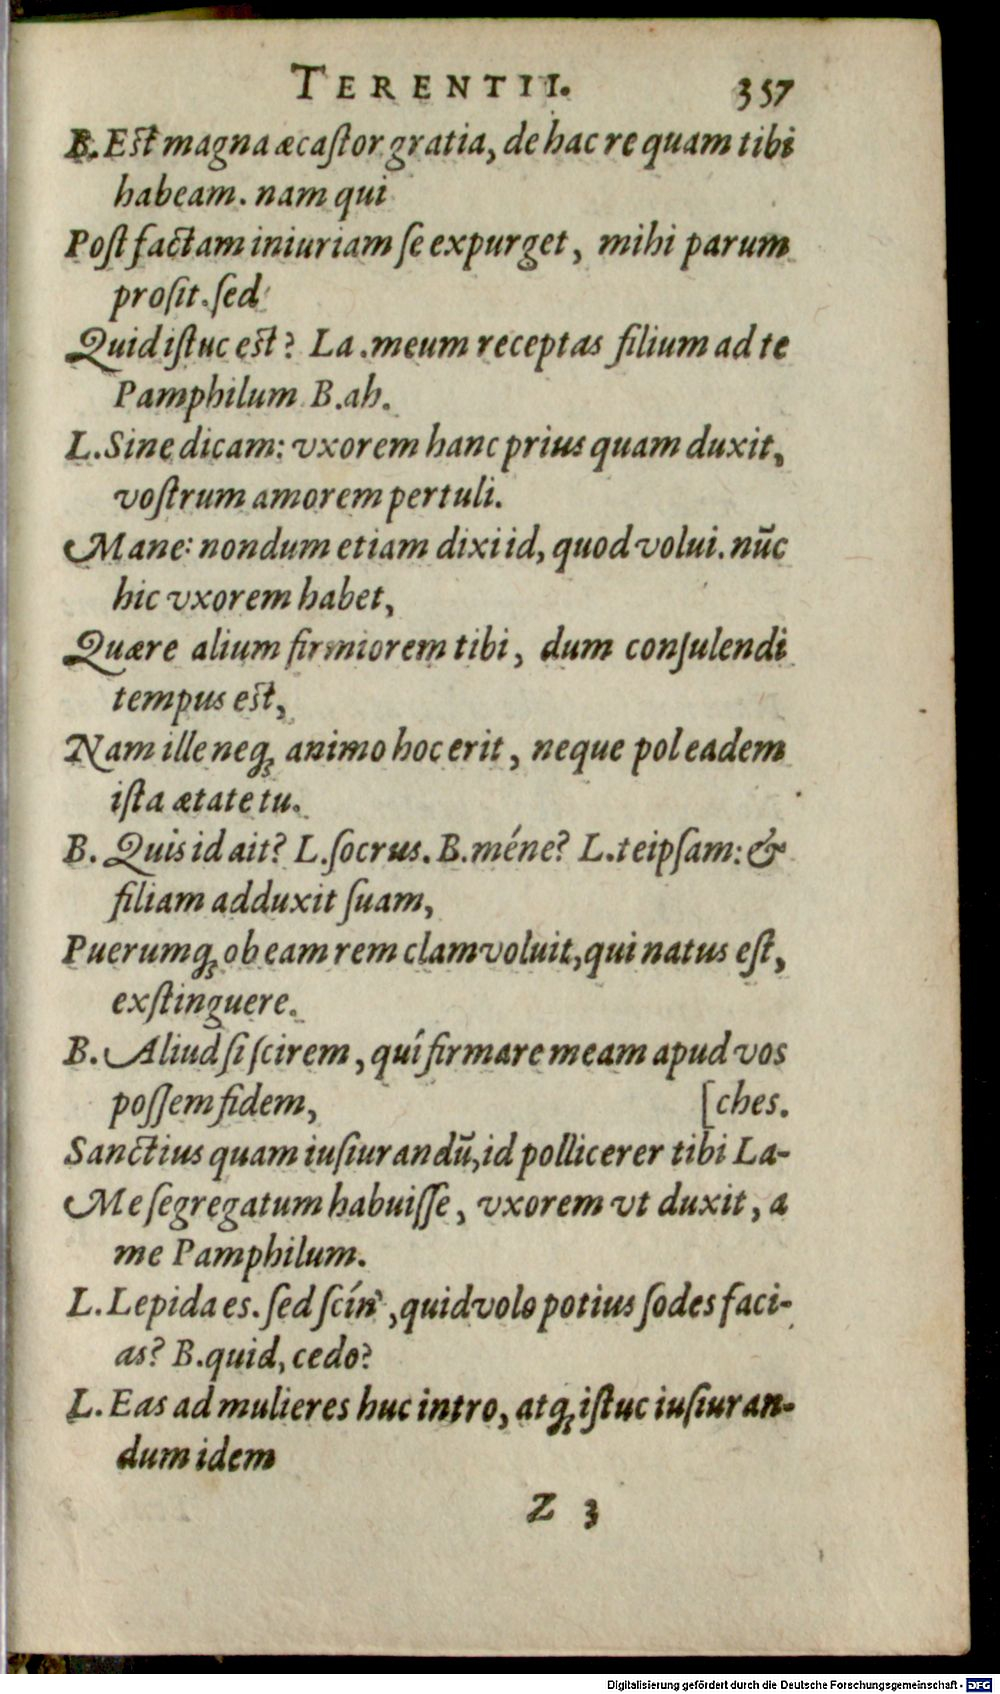 TERENTII. 357
B. Est magna æcaſtor gratia, de hac re quam tibi
habeam. nam qui
Poſt factam iniuriam ſe expurget, mihi parum
proſit. ſed
Quid iſtuc est? La. meum receptas filium ad te
Pamphilum B. ah.
L. Sine dicam: vxorem hanc prius quam duxit,
voſtrum amorem pertuli.
Mane: nondum etiam dixi id, quod volui. nūc
hic vxorem habet,
Quære alium firmiorem tibi, dum conſulendi
tempus est,
Nam ille neq; animo hoc erit, neque pol eadem
iſta ætate tu.
B. Quis id ait? L. ſocrus. B. méne? L. teipſam: &
filiam adduxit ſuam,
Puerumq; ob eam rem clam voluit, qui natus eſt,
exſtinguere.
B. Aliud ſi ſcirem, quí firmare meam apud vos
poſſem fidem, [ches.
Sanctius quam iuſiurandū, id pollicerer tibi La-
Me ſegregatum habuiſſe, vxorem vt duxit, a
me Pamphilum.
L. Lepida es. ſed ſcín', quid volo potius ſodes faci-
as? B. quid, cedo?
L. Eas ad mulieres huc intro, atq; iſtuc iuſiuran-
dum idem
Z 3
Digitalisierung gefördert durch die Deutsche Forschungsgemeinschaft - DFG